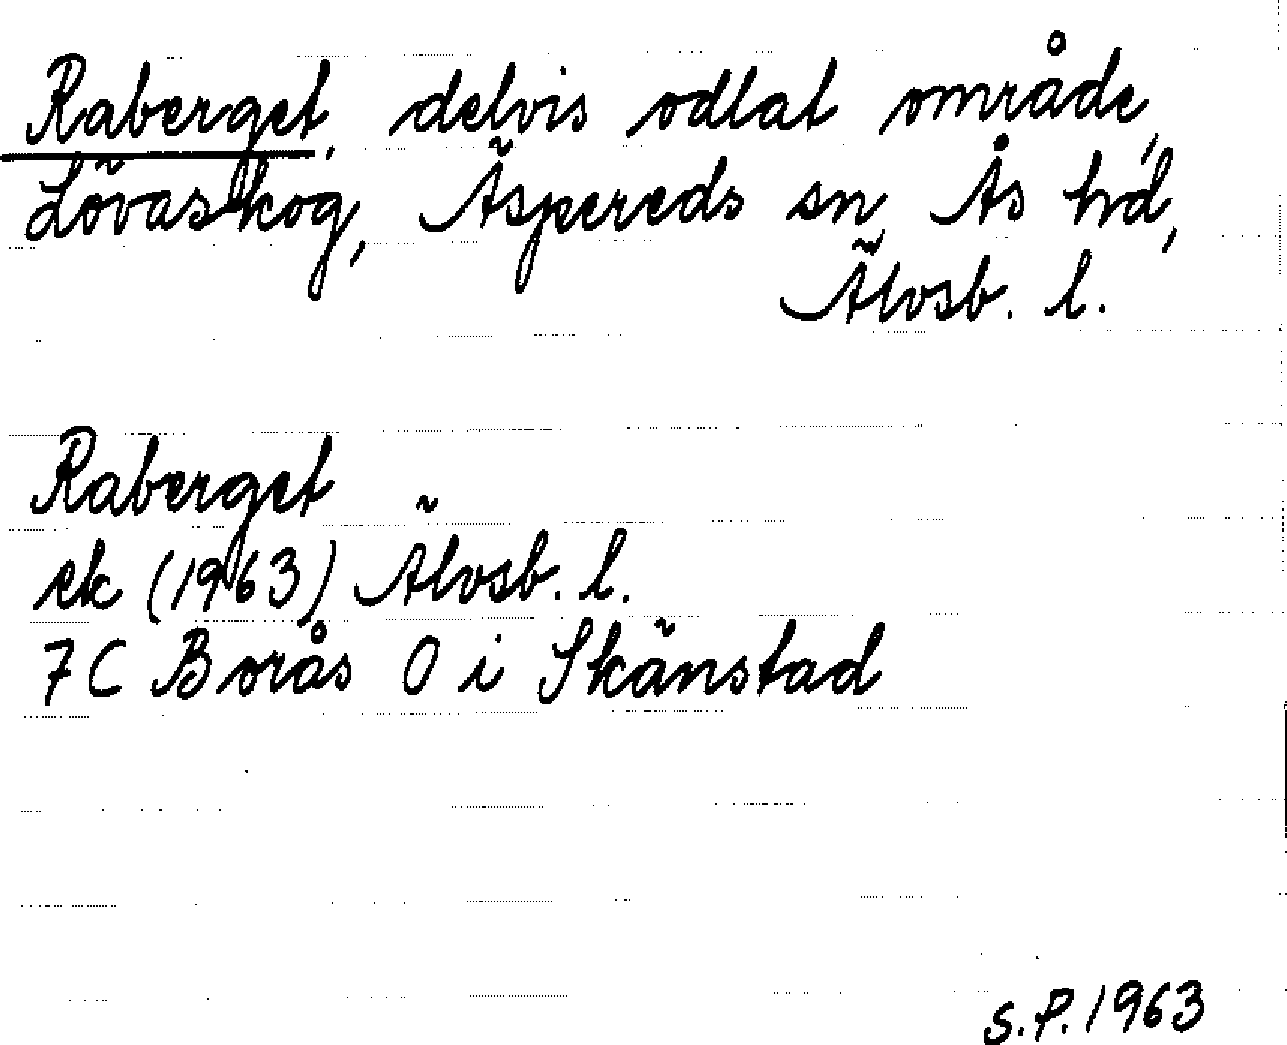 Raberget, delvis odlat område,
Lövaskog, Äspereds sn Ås hd,
Älvsb. l.
Raberget
ek (1963) Älvsb. l.
7C Borås O i Skänstad
S.P. 1963